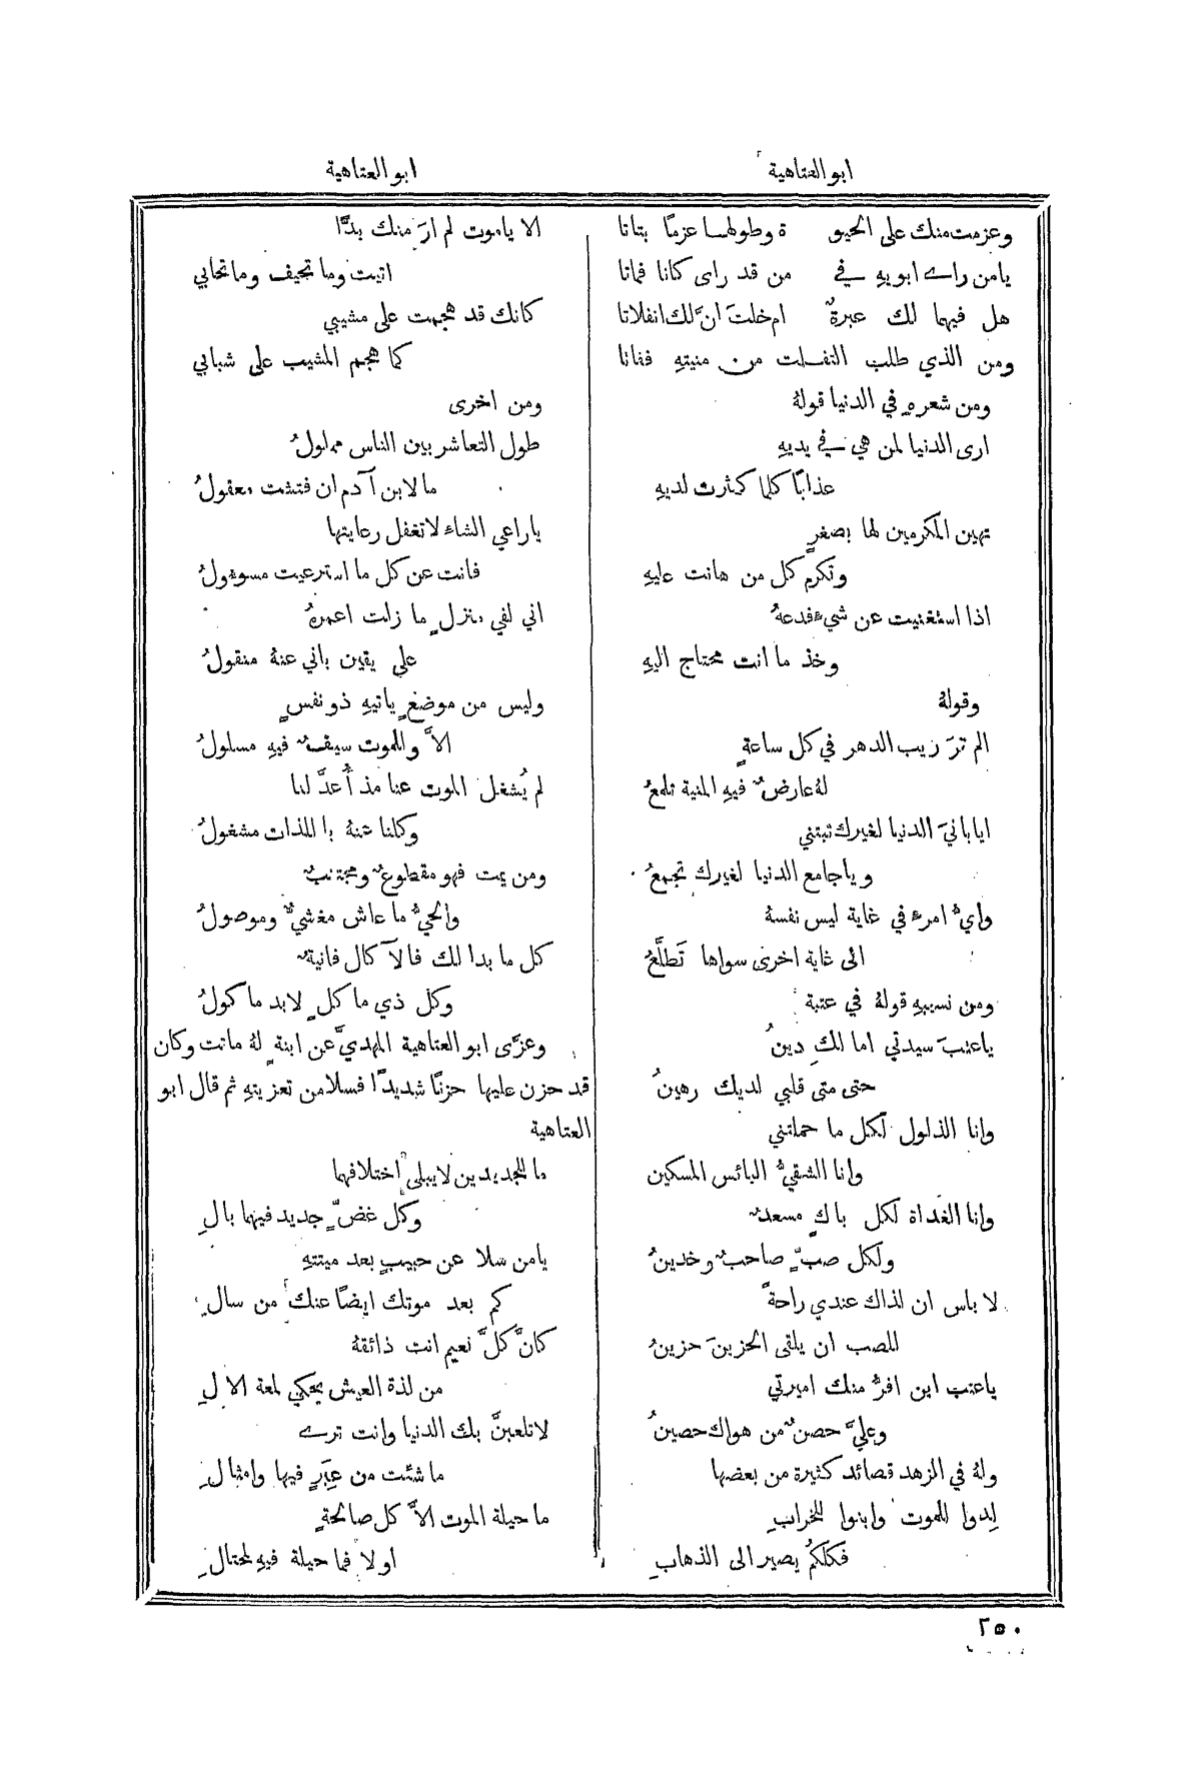 ابو العتاهية
ابو العتاهية
وعزمت منك على الحيو ة وطولهـا عزمًا بتاتا
يا من راے ابويهِ في من قد راى كانا فماتا
هل فيهما لك عبرةٌ ام خلتَ انَّ لك انفلاتا
ومن الذي طلب التفـلت من منيتهِ ففاتا
ومن شعرهِ في الدنيا قولهُ
ارى الدنيا لمن هي في يديهِ
عذابًا كلما كثرت لديهِ
تهين المكرمين لها بصغرٍ
وتكرم كل من هانت عليهِ
اذا استغنيت عن شيءٍ فدعهُ
وخذ ما انت محتاج اليهِ
وقولهُ
الم ترَ ريب الدهر في كل ساعةٍ
لهُ عارضٌ فيهِ المنية تلمعُ
ايا بانيَ الدنيا لغيرك تبتني
ويا جامع الدنيا لغيرك تجمعُ
وايُّ امرءٍ في غاية ليس نفسهُ
الى غاية اخرى سواها تَطلَّعُ
ومن نسيبهِ قولهُ في عتبة
يا عتبَ سيدتي اما لكِ دينُ
حتى متى قلبي لديك رهينُ
وانا الذلول لكل ما حملتني
وانا الشقيُّ البائس المسكين
وانا الغداة لكل باكٍ مسعدٌ
ولكل صبٍّ صاحبٌ وخدينُ
لا باس ان لذاك عندي راحةً
للصب ان يلقى الحزينَ حزينُ
يا عتب اين افرُّ منك اميرتي
وعليَّ حصنٌ من هواك حصينُ
ولهُ في الزهد قصائد كثيرة من بعضها
لِدوا للموت وابنوا للخرابِ
فكلكمُ يصير الى الذهابِ
الا يا موت لم ارَ منك بدًّا
اتيت وما تحيف وما تحابي
كانك قد هجمت على مشيبي
كما هجم المشيب على شبابي
ومن اخرى
طول التعاشر بين الناس مملولُ
ما لابن آدم ان فتشت معقولُ
يا راعي الشاء لا تغفل رعايتها
فانت عن كل ما استرعيت مسوءولُ
اني لفي منزلٍ ما زلت اعمرهُ
على يقين باني عنهُ منقولُ
وليس من موضعٍ ياتيهِ ذو نفسٍ
الاَّ وللموت سيفٌ فيهِ مسلولُ
لم يُشغل الموت عنا مذ أُعدَّ لنا
وكلنا عنهُ باللذات مشغولُ
ومن يمت فهو مقطوعٌ ومجتنبٌ
والحيُّ ما عاش مغشيٌّ وموصولُ
كل ما بدا لك فالآكال فانيةٌ
وكل ذي ماكلٍ لابد ماكولُ
وعزَّى ابو العتاهية المهديَّ عن ابنةٍ لهُ ماتت وكان
قد حزن عليها حزنًا شديدًا فسلا من تعزيتهِ ثم قال ابو
العتاهية
ما للجديدين لا يبلى اختلافهما
وكل غضٍّ جديد فيهما بالِ
يا من سلا عن حبيبٍ بعد ميتتهِ
كم بعد موتك ايضًا عنك من سالِ
كانَّ كلَّ نعيم انت ذائقهُ
من لذة العيش يحكي لمعة الالِ
لا تلعبنَّ بك الدنيا وانت ترے
ما شئت من عِبَرٍ فيها وامثالِ
ما حيلة الموت الاَّ كل صالحةٍ
اولا فما حيلة فيهِ لمحتالِ
٢٥٠